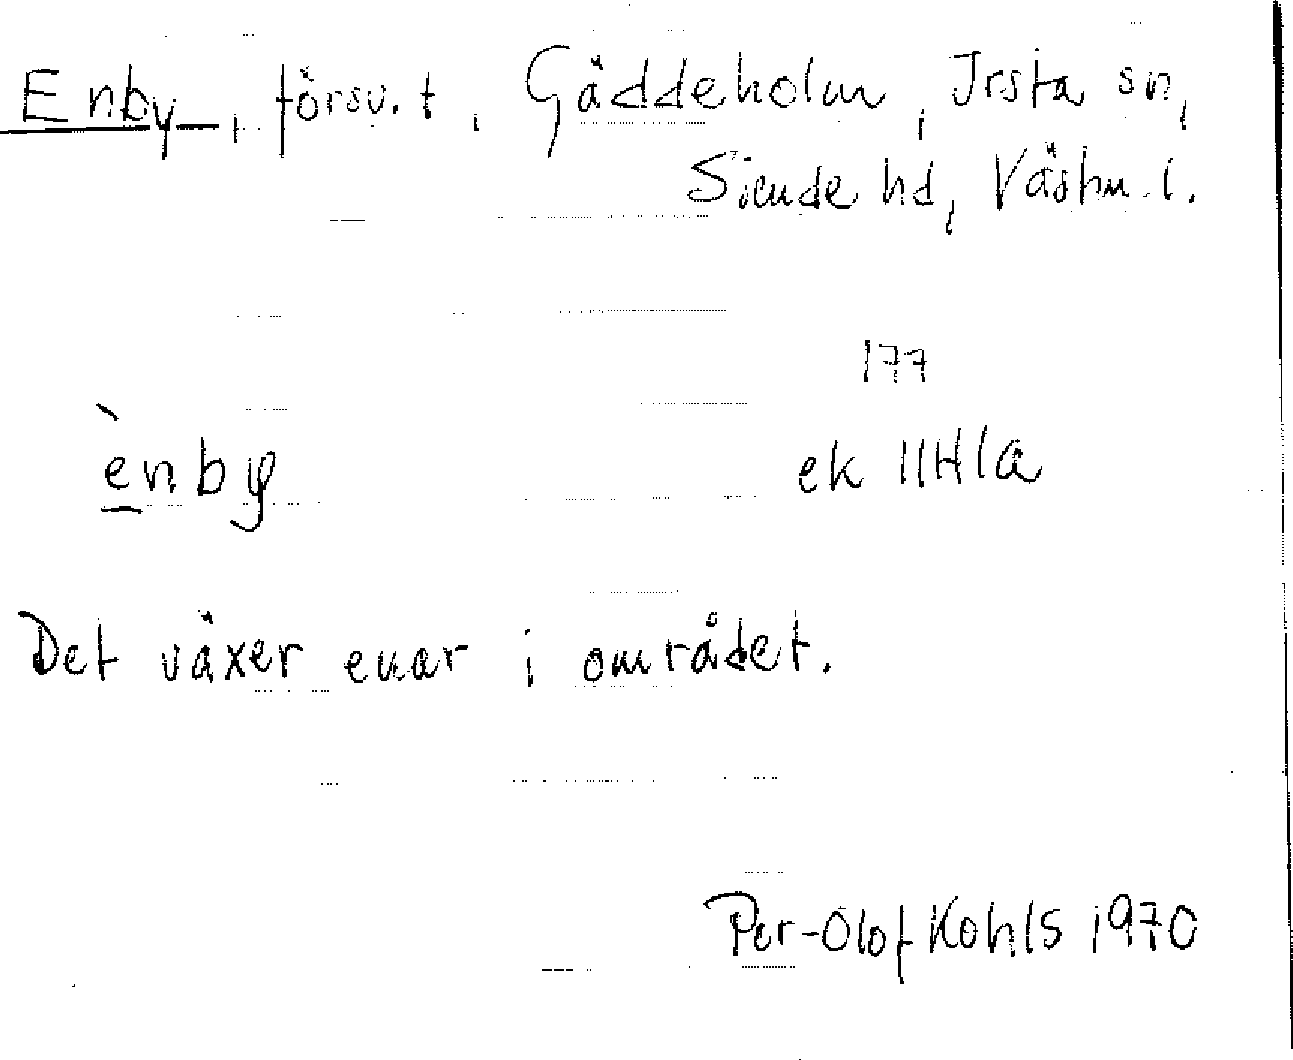 Enby, försv. t, Gäddeholm, Irsta sn,
Siende hd, Västm. l.
177
ènby ek 11H1a
Det växer enar i området.
Per-Olof Kohls 1970